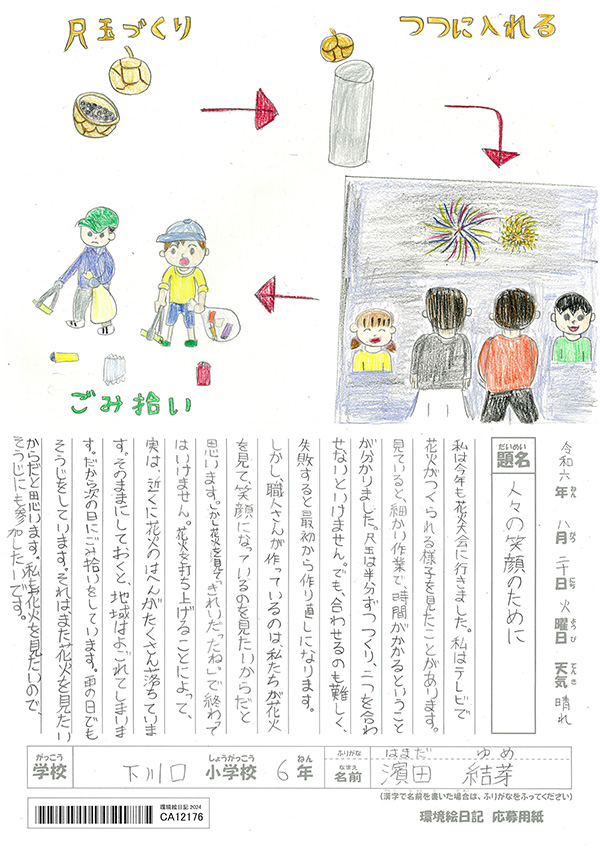 尺玉づくり
つつに入れる
ごみ拾い
令和六年 八月 二十日 火曜日 天気 晴れ
ねん がつ にち ようび てんき
だいめい
題名
人々の笑顔のために
私は今年も花火大会に行きました。私はテレビで
花火がつくられる様子を見たことがあります。
見ていると、細かい作業で、時間がかかるということ
が分かりました。尺玉は半分ずつつくり、二つを合わ
せないといけません。でも、合わせるのも難しく、
失敗すると最初から作り直しになります。
しかし、職人さんが作っているのは、私たちが花火
を見て、笑顔になっているのを見たいからだと
思います。しかし花火を見て「きれいだったね。」で終わって
はいけません。花火を打ち上げることによって、
実は、近くに花火のはへんがたくさん落ちていま
す。そのままにしておくと、地域はよごれてしまいま
す。だから次の日にごみ拾いをしています。雨の日でも
そうじをしています。それはまた花火を見たい
からだと思います。私も花火を見たいので、
そうじにも参加したいです。
がっこう しょうがっこう ねん ふりがな はまだ ゆめ
学校 下川口 小学校 6年 なまえ 名前 濱田 結芽
(漢字で名前を書いた場合は、ふりがなをふってください)
環境絵日記 2024
CA12176
環境絵日記 応募用紙